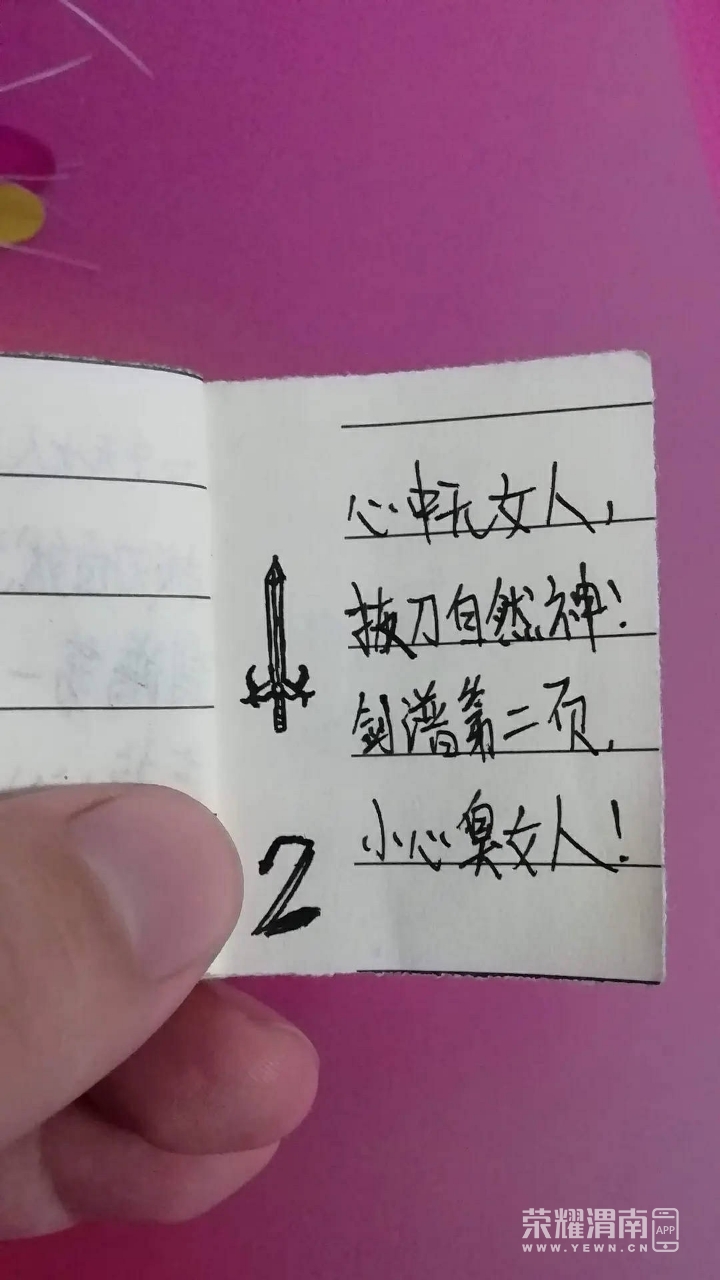 心中无女人,
拔刀自然神!
剑谱第二页,
小心臭女人!
2
荣耀渭南APP
WWW.YEWN.CN